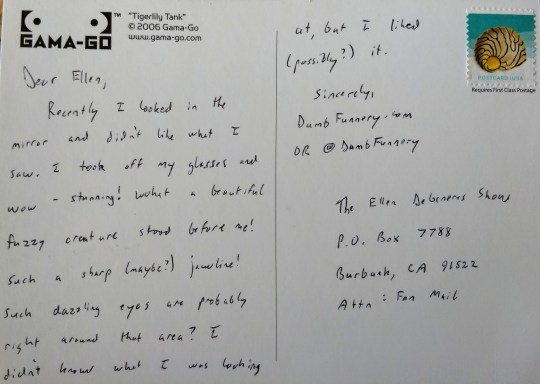 GAMA-GO™
"Tigerlily Tank"
© 2006 Gama-Go
www.gama-go.com
Dear Ellen,
Recently I looked in the
mirror and didn't like what I
saw. I took off my glasses and
wow - stunning! What a beautiful
fuzzy creature stood before me!
Such a sharp (maybe?) jawline!
Such dazzling eyes are probably
right around that area? I
didn't know what I was looking
at, but I liked
(possibly?) it.
Sincerely,
DumbFunnery.com
OR @DumbFunnery
POSTCARD | USA
Requires First Class Postage
The Ellen DeGeneres Show
P.O. Box 7788
Burbank, CA 91522
Attn: Fan Mail